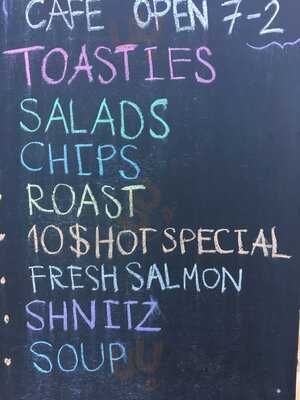 CAFE OPEN 7-2
TOASTIES
SALADS
CHIPS
ROAST
10$ HOT SPECIAL
FRESH SALMON
SHNITZ
SOUP